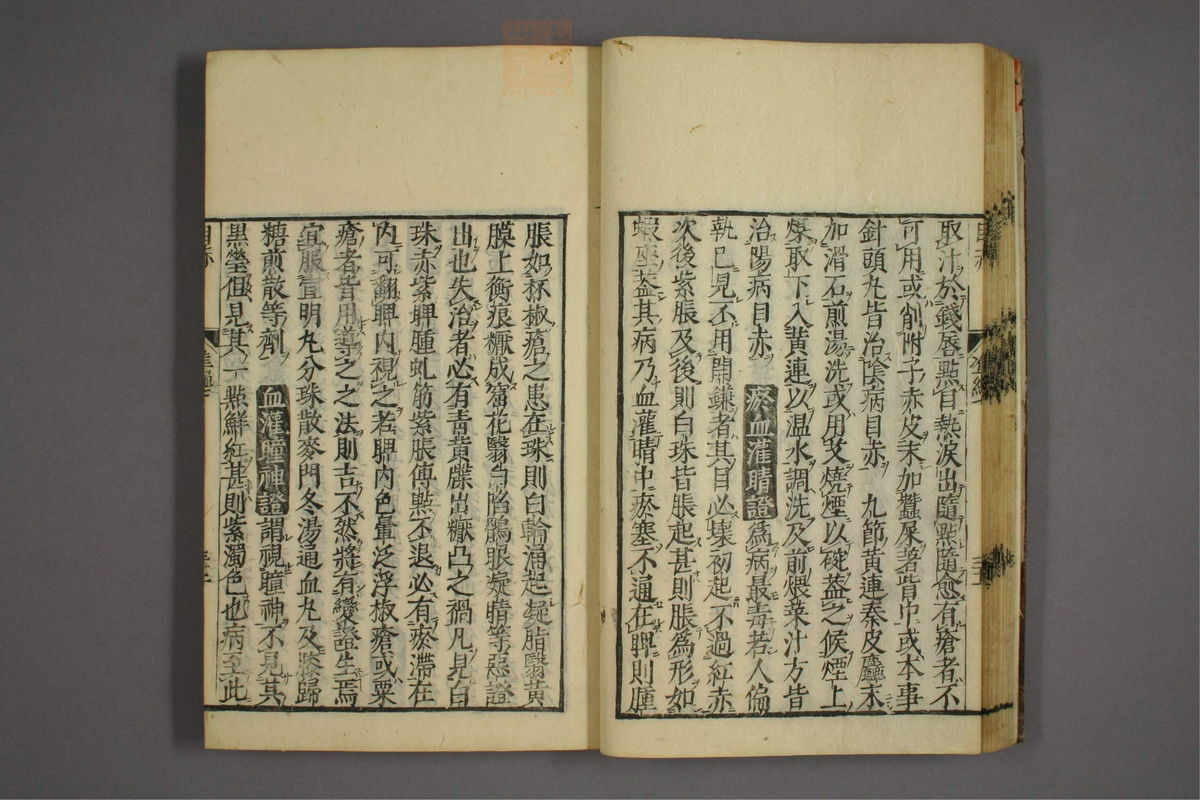 取汁於錢唇點目熱淚出隨點隨愈有瘡者不
可用或削附子赤皮末加蠶屎著眥中或本事
針頭丸皆治陰病目赤 九節黃連秦皮麤末
加滑石煎湯洗或用艾燒煙以碗蓋之候煙上
煤取下入黃連以温水調洗及前煨菜汁方皆
治陽病目赤 瘀血灌睛證爲病最毒若人偏
執已見不用開鎌者其目必壞初起不過紅赤
次後紫脹及後則白珠皆脹起甚則脹爲形如
蝦座蓋其病乃血灌睛中瘀塞不通在睥則腫
脹如杯椒瘡之患在珠則白輪涌起凝脂翳黃
膜上衝痕㿉成窟花翳白陷鶻眼凝睛等惡證
出也失治者必有青黃牒出㿉凸之禍凡見白
珠赤紫睥腫虬筋紫脹傅點不退必有瘀滯在
內可翻睥內視之若睥內色暈泛浮椒瘡或粟
瘡者皆用導之之法則吉不然將有變證生焉
宜服宣明丸分珠散麥門冬湯通血丸及勝歸
糖煎散等劑 血灌瞳神證謂視瞳神不見其
黑瑩但見其一點鮮紅甚則紫濁色也病至此